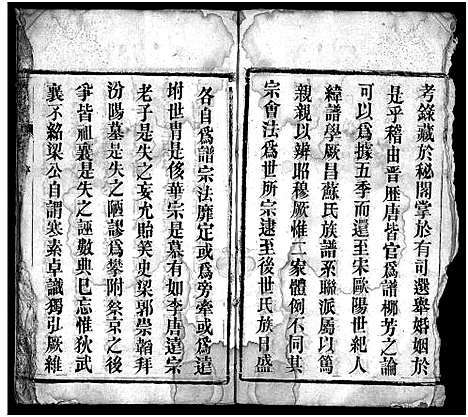 考錄藏於秘閣掌於有司選舉婚姻於
是乎稽由晋歷唐皆官爲譜柳芳之論
可以爲據五季而還至宋歐陽世紀人
緯譜學厥昌蘇氏族譜系聯派屬以篤
親親以辨昭穆厥惟二家體例不同其
宗會法爲世所宗逮至後世氏族日盛
各自爲譜宗法靡定或爲旁牽或爲遠
坿世胄是後華宗是慕有如李唐遠宗
老子是失之妄尤貽笑史梁郭崇韜拜
汾陽墓是失之陋謬爲攀附祭京之後
爭皆祖襄是失之誣數典巳忘惟狄武
襄不絡梁公自謂寒素卓識獨弘厥維